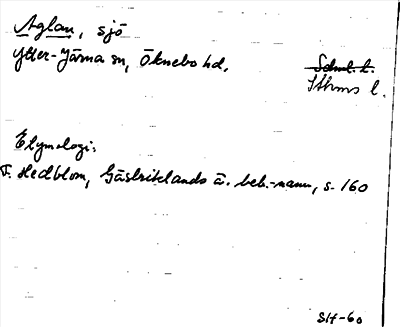 Aglan, sjö
Ytter-Järna sn, Öknebo hd.
Sdml. l.
Sthms l.
Etymologi:
F. Hedblom, Gästriklands ä. beb.-namn, s. 160
SH-60